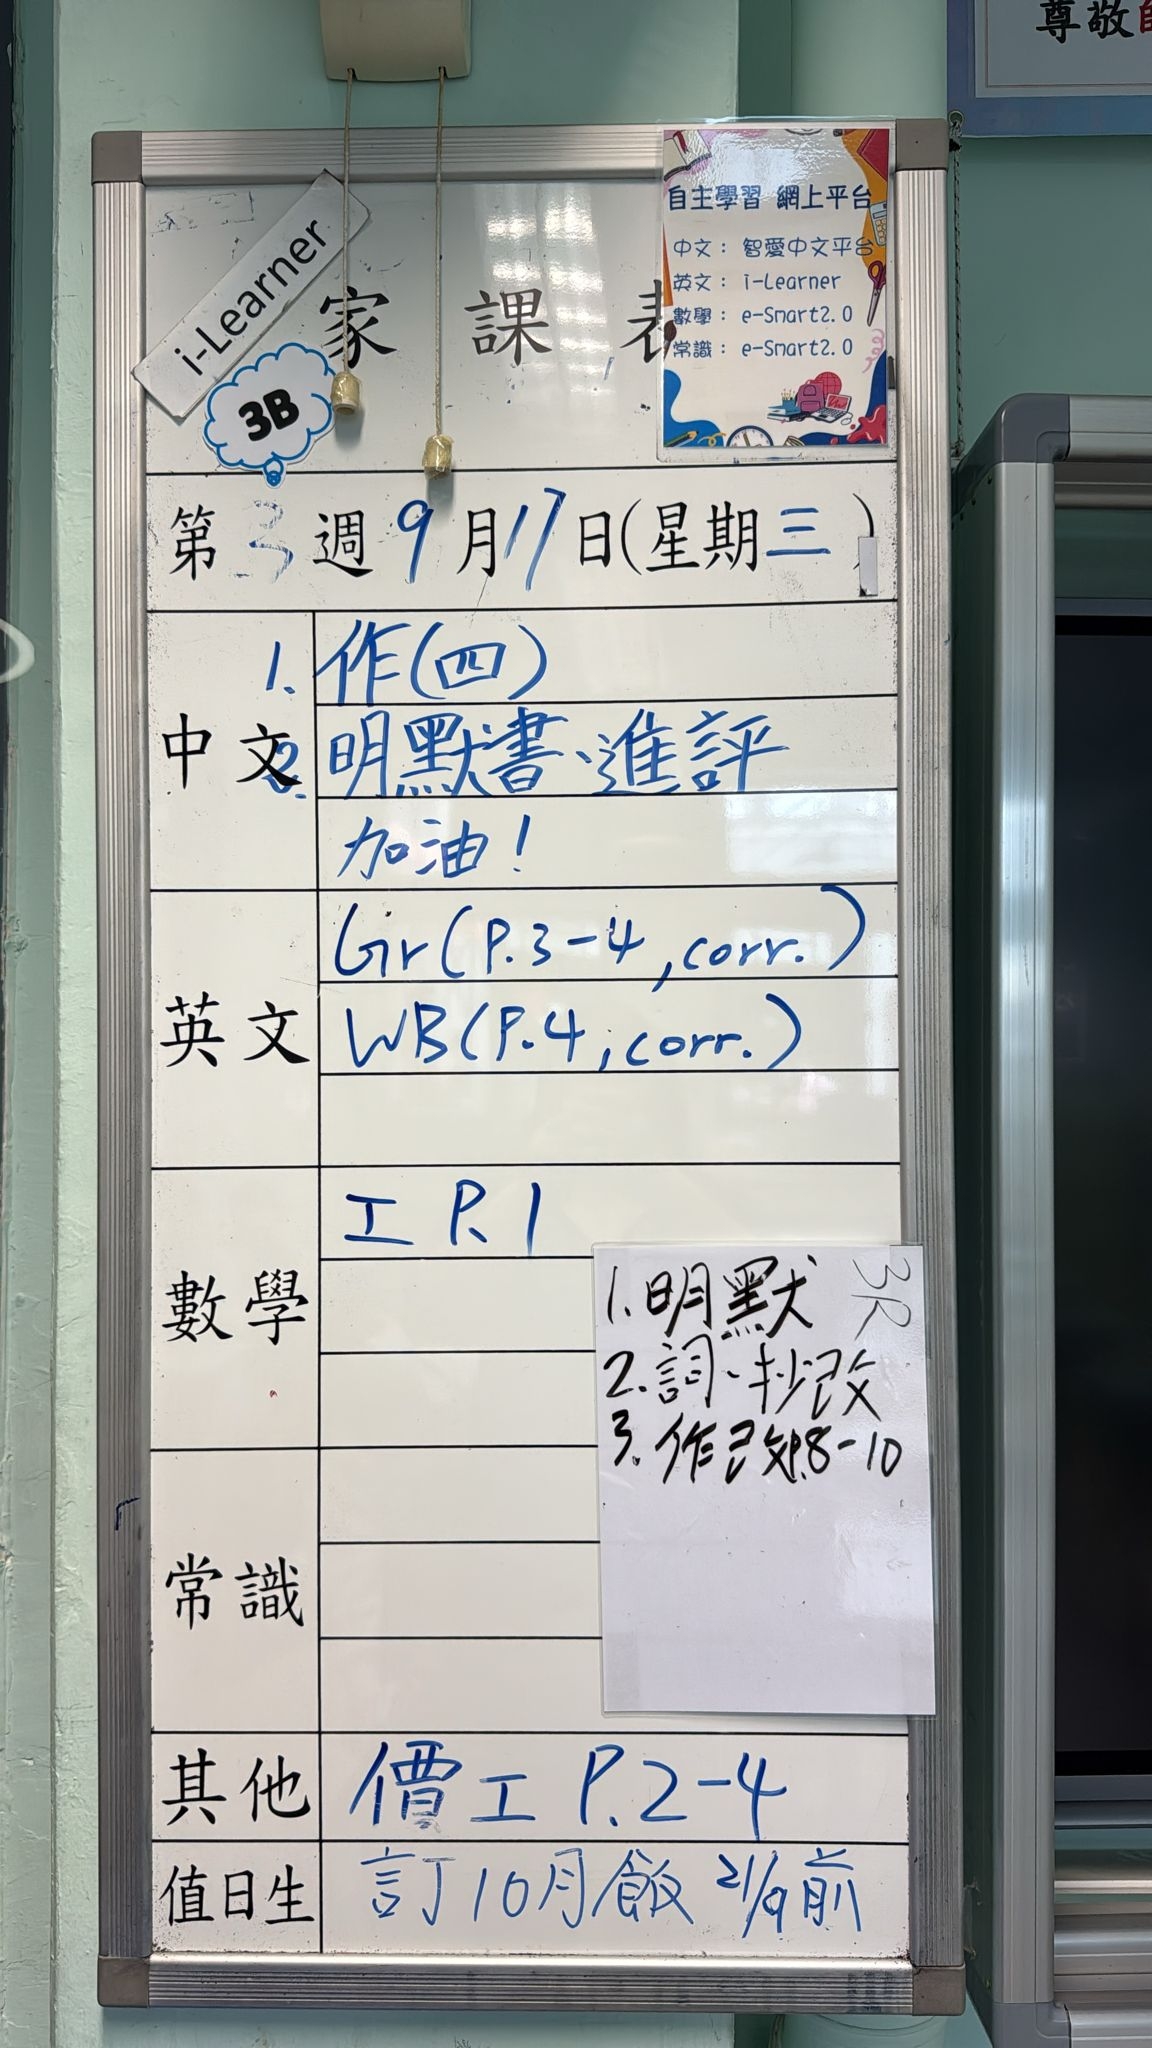 尊敬師
i-Learner
3B
家課表
自主學習 網上平台
中文： 智愛中文平台
英文： i-Learner
數學： e-Smart2.0
常識： e-Smart2.0
第3週9月17日(星期三)
中文
1. 作(四)
2. 明默書、進評
加油！
英文
Gr(P.3-4, corr.)
WB(P.4, corr.)
數學
工 P.1
3R
1. 明默
2. 詞、抄改
3. 作改P.8-10
常識
其他
價工 P.2-4
值日生
訂10月飯 21/9前